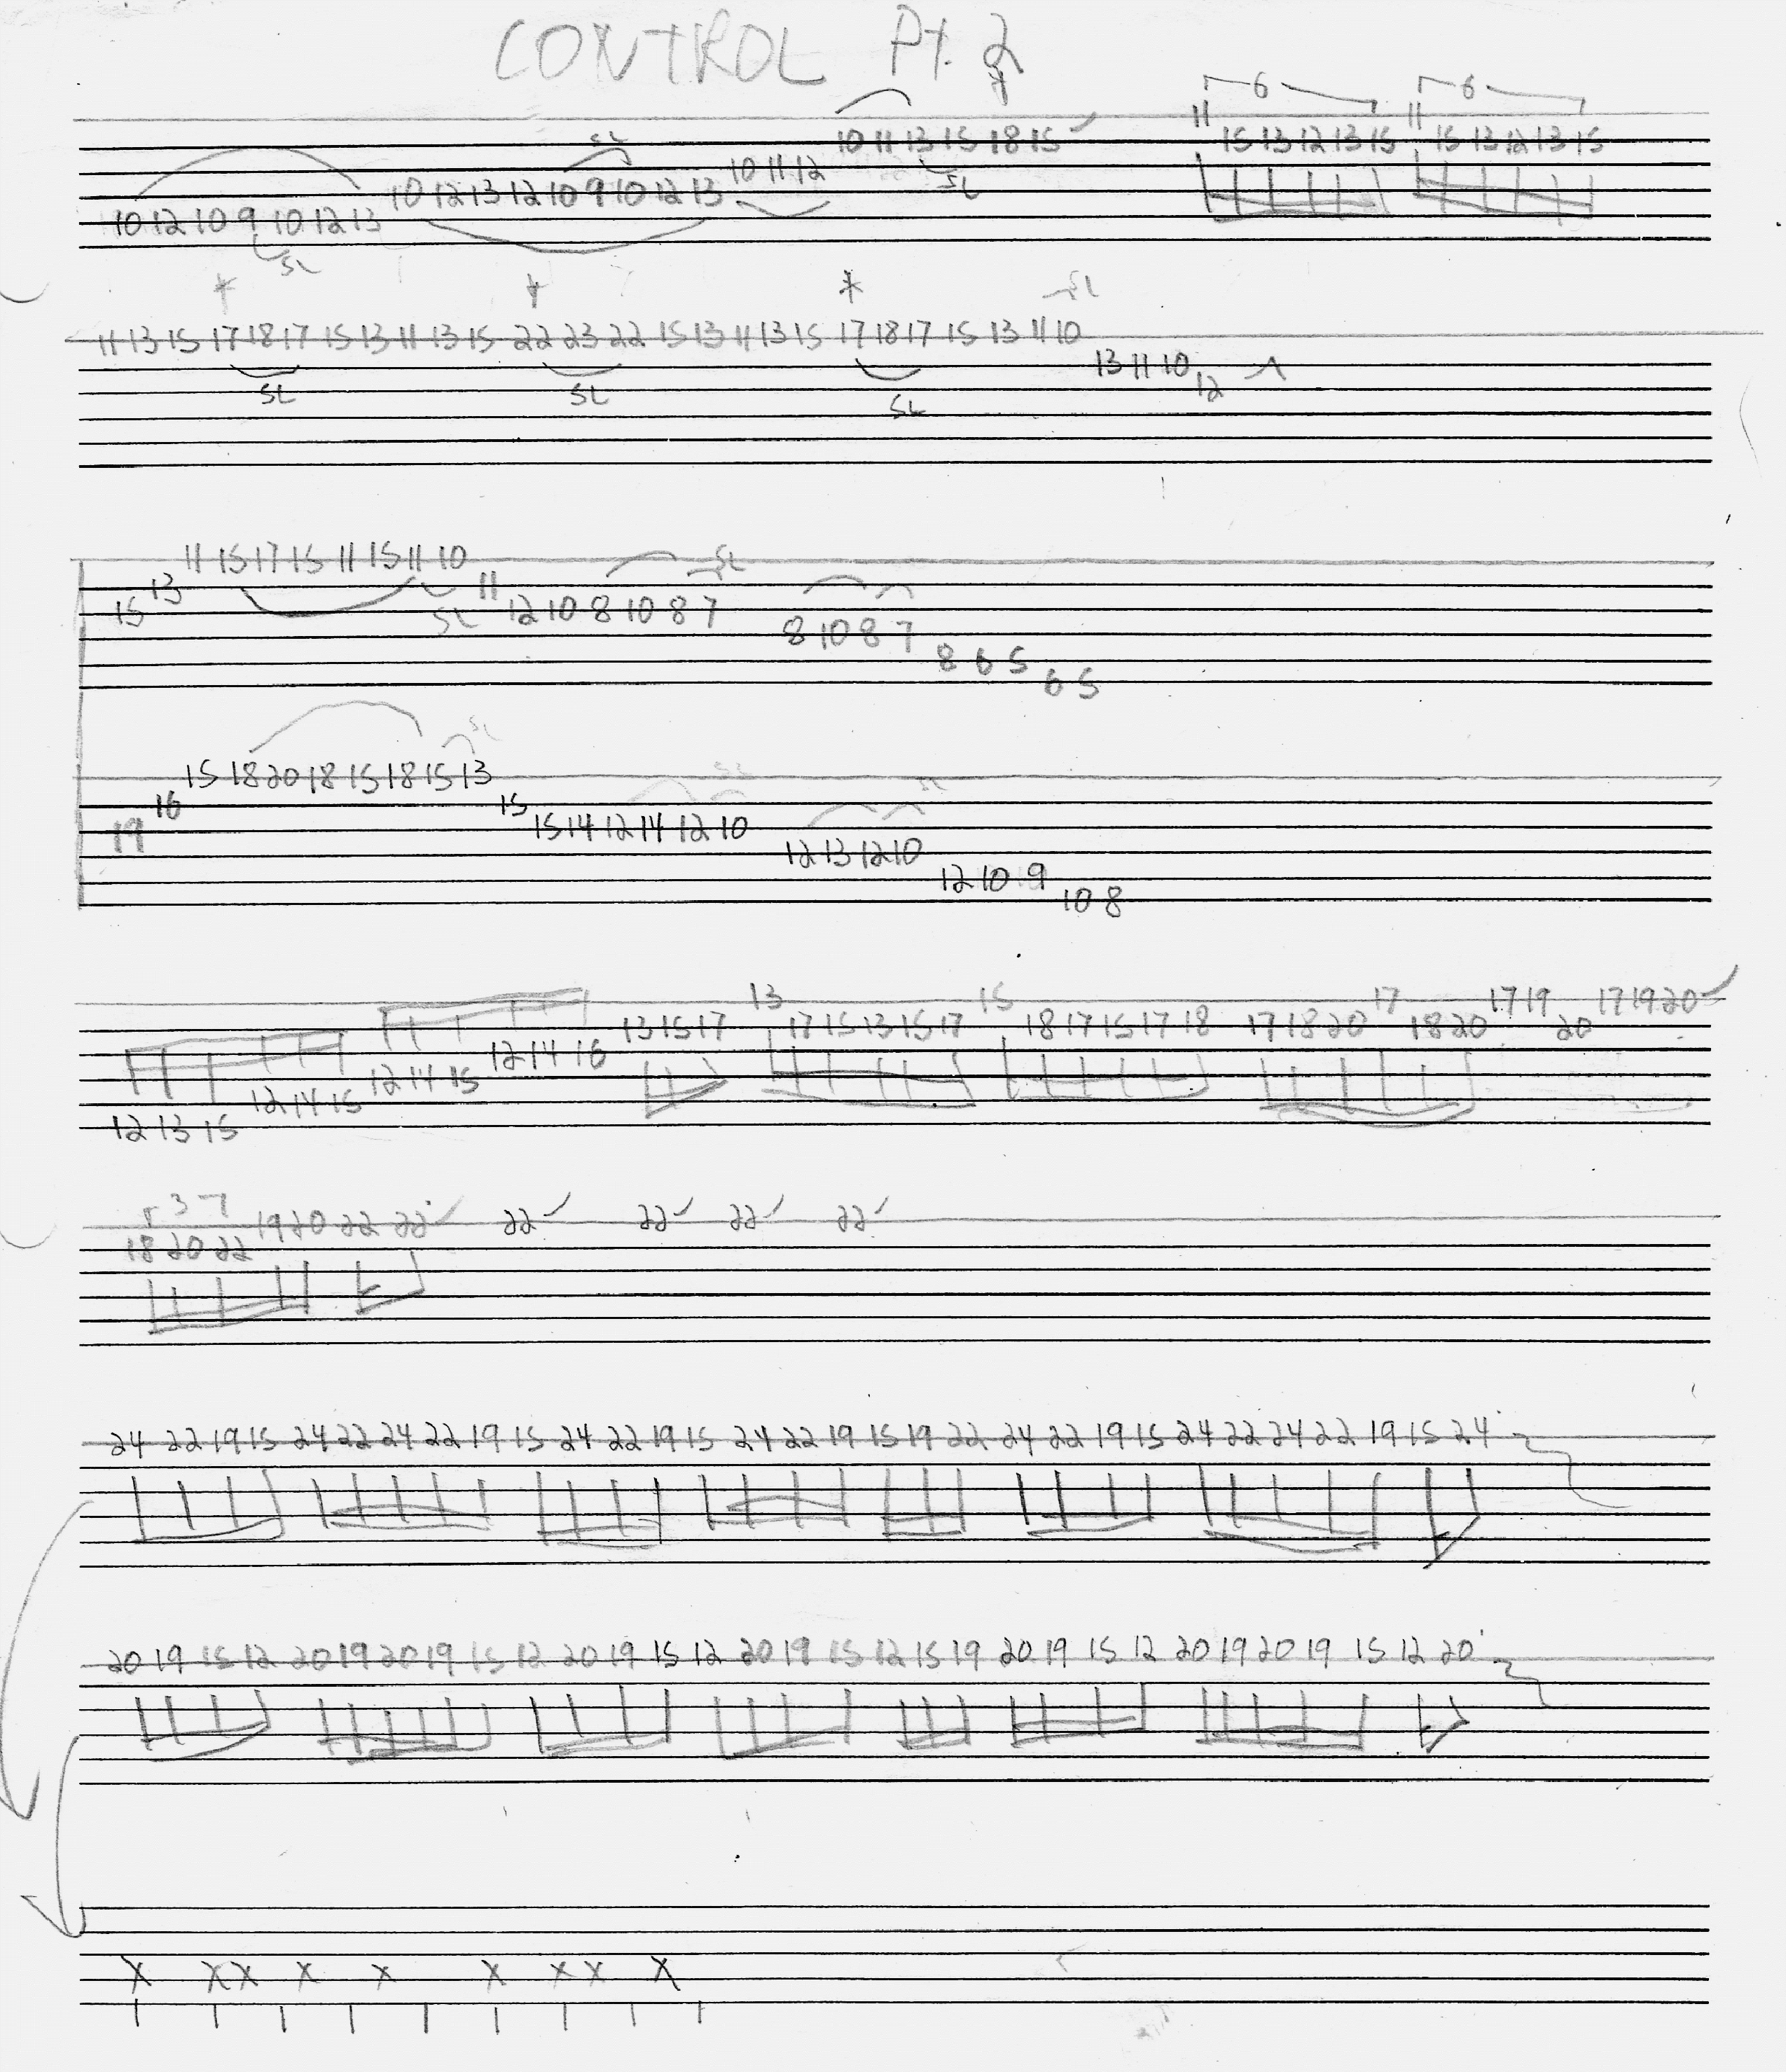 CONTROL Pt. 2
6 6
10 11 13 15 18 15 11 15 13 12 13 15 11 15 13 12 13 15
SL
10 11 12 SL
10 12 13 12 10 9 10 12 13
10 12 10 9 10 12 13
SL
* * * SL
11 13 15 17 18 17 15 13 11 13 15 22 23 22 15 13 11 13 15 17 18 17 15 13 11 10
13 11 10
12
SL SL SL
11 15 17 15 11 15 11 10 SL
13 11
15 SL 12 10 8 10 8 7
8 10 8 7
8 6 5
6 5
SL
15 18 20 18 15 18 15 13
SL SL
16 15
17 15 14 12 14 12 10
12 13 12 10
12 10 9
10 8
13 15 17 17 19 17 19 20
13 15 17 17 15 13 15 17 18 17 15 17 18 17 18 20 18 20 20
12 14 16
12 14 15
12 14 15
12 13 15
3
19 20 22 22 22 22 22 22
18 20 22
24 22 19 15 24 22 24 22 19 15 24 22 19 15 24 22 19 15 19 22 24 22 19 15 24 22 24 22 19 15 24
20 19 15 12 20 19 20 19 15 12 20 19 15 12 20 19 15 12 15 19 20 19 15 12 20 19 20 19 15 12 20
X X X X X X X X X